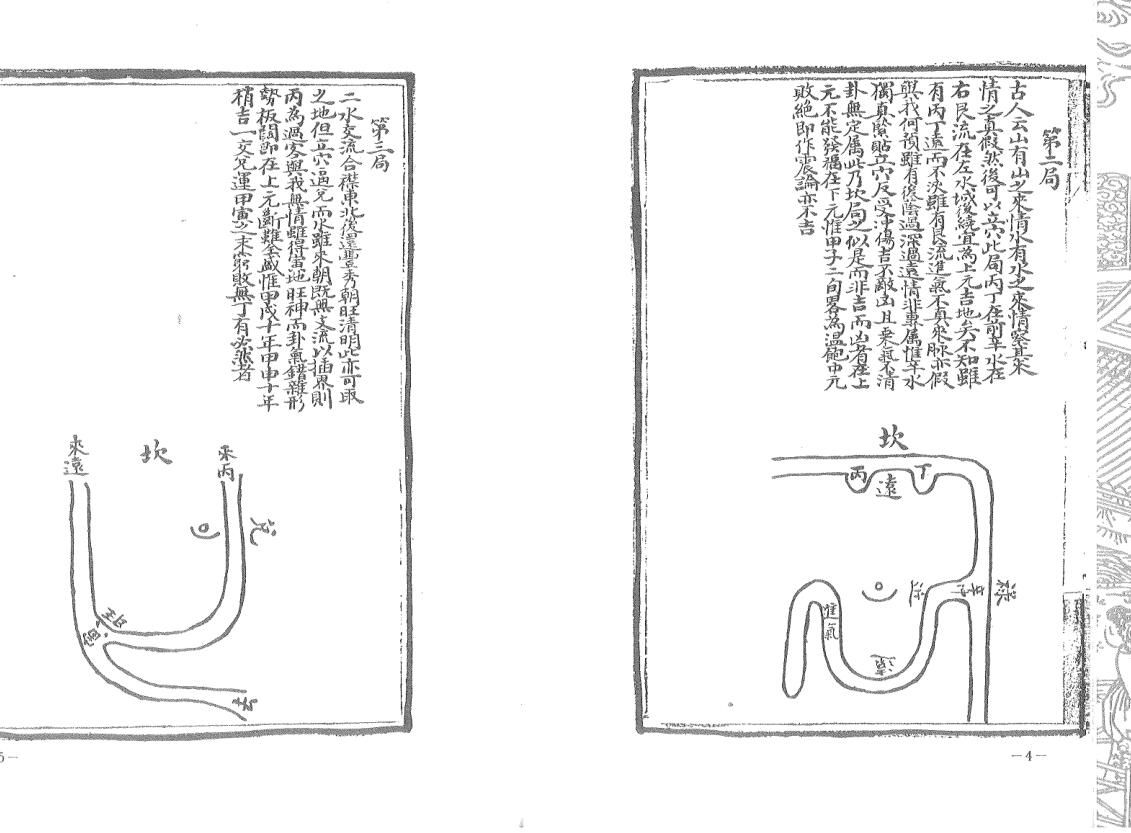 第二局
古人云山有山之來情水有水之來情察其來
情之真假然後可以立穴此局丙丁在前辛水在
右艮流在左水域後繞宜為上元吉地矣不知雖
有丙丁遠而不決雖有艮流進氣不真來脉亦假
與我何預雖有後陰過深過遠情非專属惟辛水
獨真隂貼立穴反受沖傷吉不敵凶且乗氣不清
卦無定属此乃坎局之似是而非吉而凶者在上
元不能發福在下元惟甲子二旬畧為温飽中元
敗絶即作震論亦不吉
坎
丙
丁
遠
辛
進氣
—4—
第三局
二水交流合襟東北後還豐秀朝旺清明此亦可取
之地但立穴逼兌而水雖來朝既無支流以插界則
丙為過客與我無情雖得寅地旺神而卦氣錯雜形
勢板闊即在上元斷難全盛惟甲戌十年甲申十年
稍吉一交兌運甲寅之末窮敗無丁有必然者
來遠
坎
來丙
兌
5—